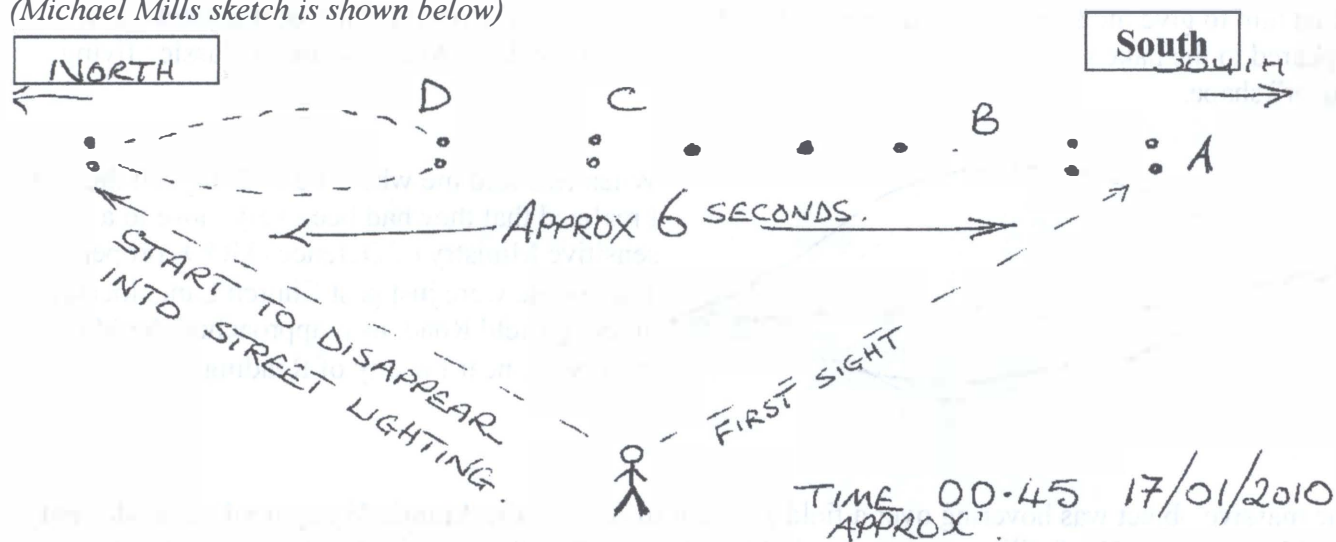 (Michael Mills sketch is shown below)
NORTH
South
SOUTH
D
C
B
A
APPROX 6 SECONDS
START TO DISAPPEAR
INTO STREET LIGHTING.
FIRST SIGHT
TIME 00.45 17/01/2010
APPROX.